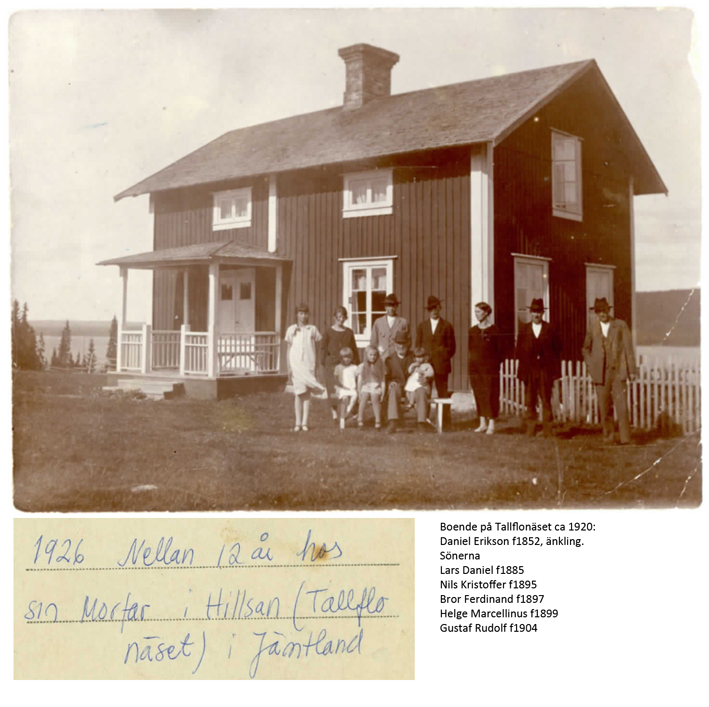 1926 Nellan 12 år hos
sin Morfar i Hillsan (Tallflo
näset) i Jämtland
Boende på Tallflonäset ca 1920:
Daniel Erikson f1852, änkling.
Sönerna
Lars Daniel f1885
Nils Kristoffer f1895
Bror Ferdinand f1897
Helge Marcellinus f1899
Gustaf Rudolf f1904